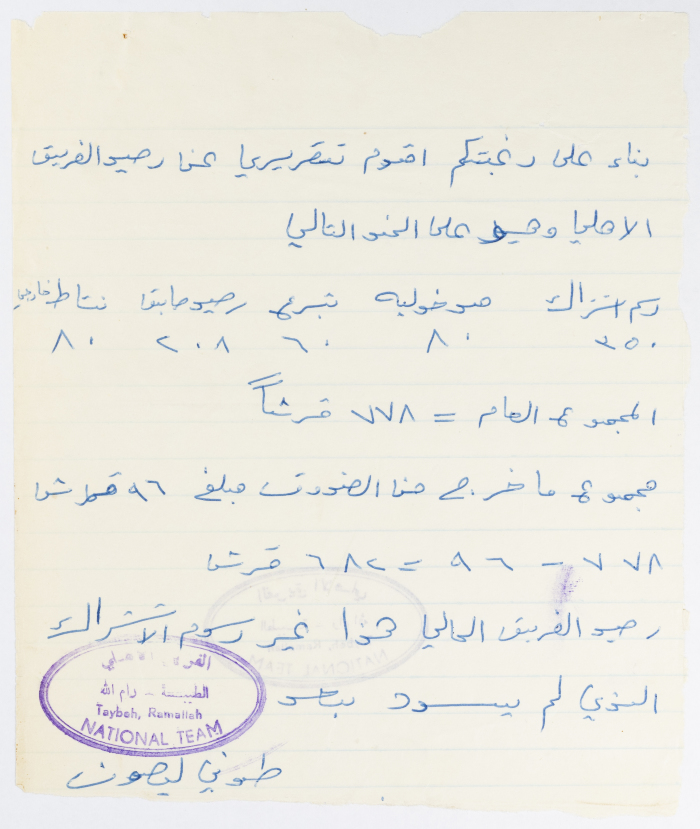 بناء على رغبتكم اقوم تتقريري عن رصيد الفريق
الاهلي وهو على النحو التالي
رسم اشتراك صندوليه تبرع رصيد سابق نشاط خارجي
٣٥٠ ٨٠ ٦٠ ٢٠٨ ٨٠
المجموع العام = ٧٧٨ قرشاً
مجموع ما خرج من الصندوق مبلغ ٩٦ قرش
٧٧٨ - ٩٦ = ٦٨٢ قرش
رصيد الفريق الحالي هذا غير رسوم الاشتراك
الذي لم يسدد بعد
الطيبة - رام الله
Taybeh, Ramallah
NATIONAL TEAM
طوني